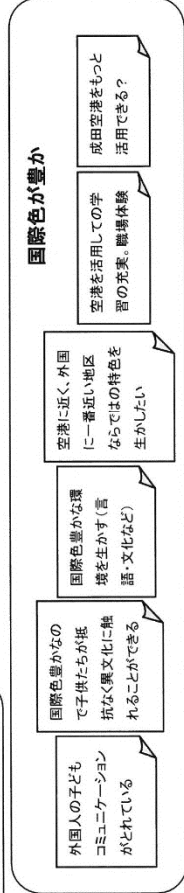 国際色が豊か
外国人の子ども
コミュニケーション
がとれている
国際色豊かなの
で子供たちが抵
抗なく異文化に触
れることができる
国際色豊かな環
境を生かす(言
語・文化など)
空港に近く、外国
に一番近い地区
ならではの特色を
生かしたい
空港を活用しての学
習の充実。職場体験
成田空港をもっと
活用できる?